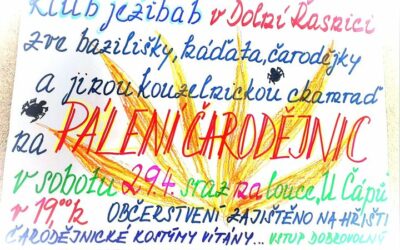 Klub ježibab v Dolní Řasnici
zve bazilišky, káďata, čarodějky
a jinou kouzelnickou chamraď
na PÁLENÍ ČARODĚJNIC
v sobotu 29.4. sraz na louce „U Čápů"
v 19,⁰⁰h OBČERSTVENÍ ZAJIŠTĚNO NA HŘIŠTI
ČARODĚJNICKÉ KOSTÝMY VÍTÁNY... VSTUP DOBROVOLNÝ